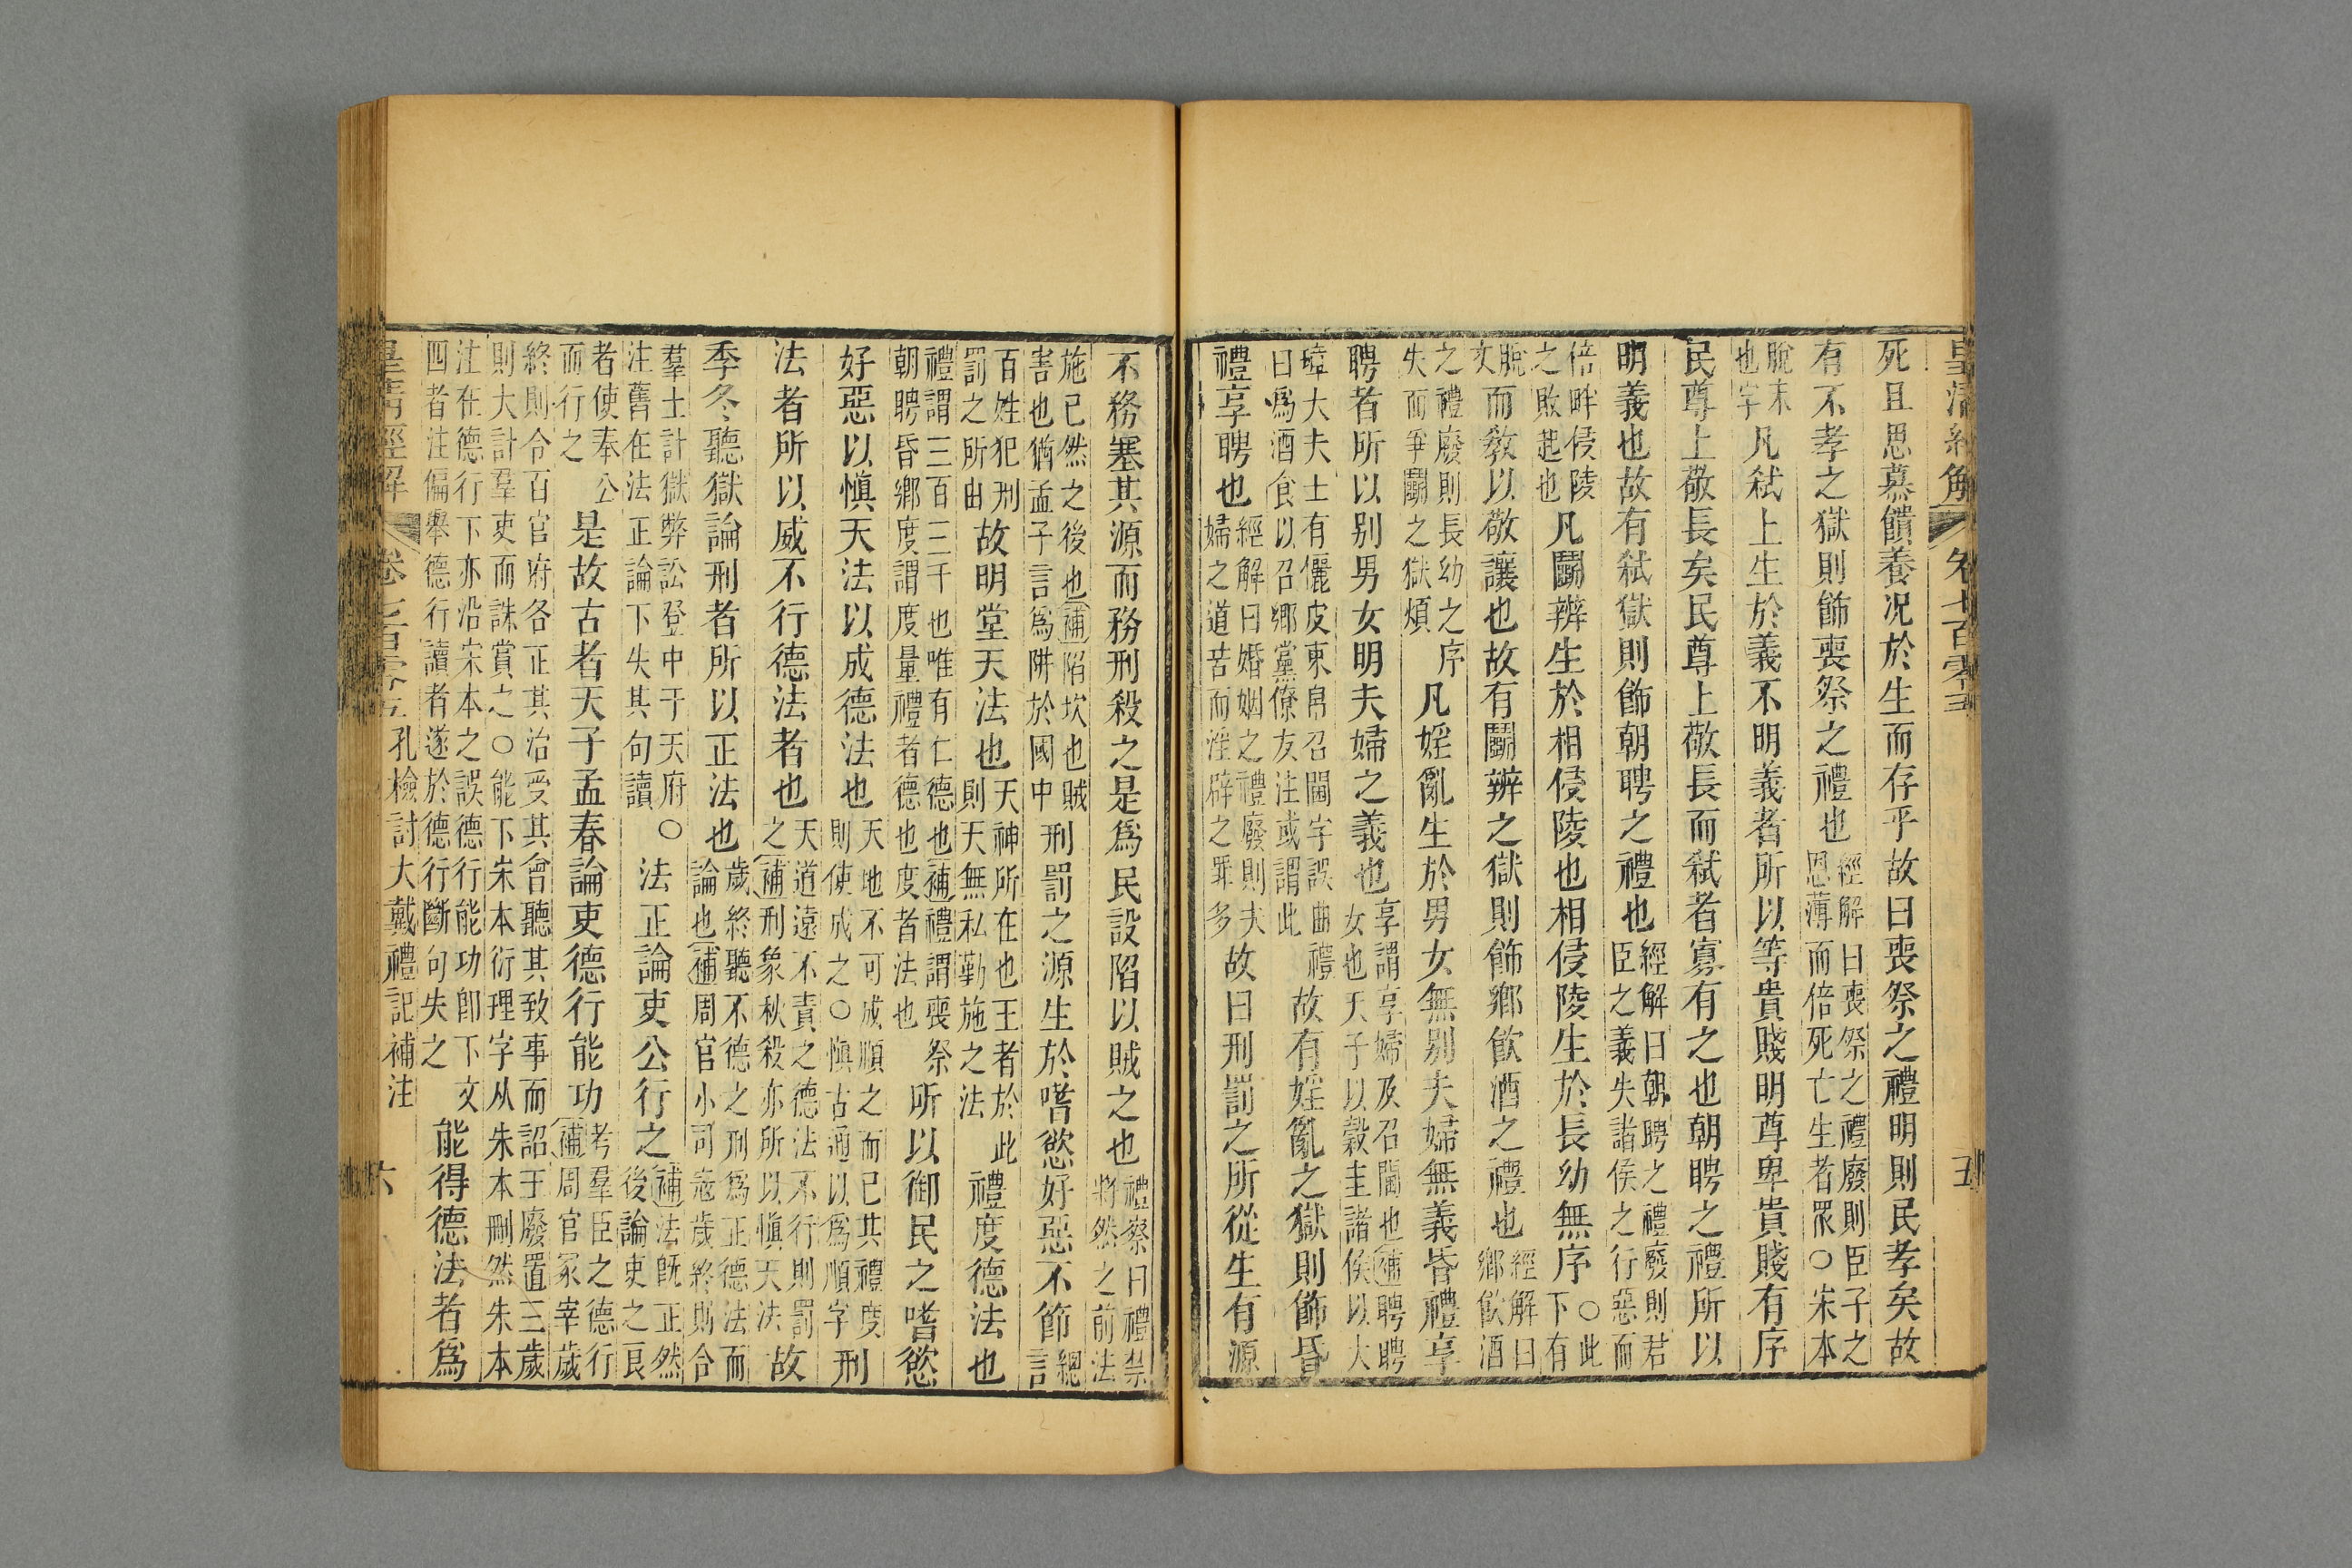 皇清經解 卷七百零五 五
死且思慕饋養況於生而存乎故曰喪祭之禮明則民孝矣故
有不孝之獄則飾喪祭之禮也經解曰喪祭之禮廢則臣子之恩薄而倍死亡生者眾〇宋本
脫末也字凡弒上生於義不明義者所以等貴賤明尊卑貴賤有序
民尊上敬長矣民尊上敬長而弒者寡有之也朝聘之禮所以
明義也故有弒獄則飾朝聘之禮也經解曰朝聘之禮廢則君臣之義失諸侯之行惡而
倍畔侵陵之敗起也凡鬭辨生於相侵陵也相侵陵生於長幼無序〇此下有
脫文而教以敬讓也故有鬭辨之獄則飾鄉飲酒之禮也經解曰鄉飲酒
之禮廢則長幼之序失而爭鬭之獄煩凡婬亂生於男女無別夫婦無義昏禮享
聘者所以別男女明夫婦之義也享謂享婦及召閫也補聘聘女也天子以穀圭諸侯以大
璋大夫士有儷皮束帛召閫字誤曲禮曰爲酒食以召鄉黨僚友注或謂此故有婬亂之獄則飾昏
禮享聘也經解曰婚姻之禮廢則夫婦之道苦而淫辟之罪多故曰刑罰之所從生有源
不務塞其源而務刑殺之是爲民設陷以賊之也禮察曰禮禁將然之前法
施已然之後也補陷坎也賊害也猶孟子言爲阱於國中刑罰之源生於嗜慾好惡不節總言
百姓犯刑罰之所由故明堂天法也天神所在也王者於此則天無私勤施之法禮度德法也
禮謂三百三千也唯有仁德也補禮謂喪祭朝聘昏鄉度謂度量禮者德也度者法也所以御民之嗜慾
好惡以愼天法以成德法也天地不可成順之而已其禮度則使成之〇愼古通以爲順字刑
法者所以威不行德法者也天道遠不責之德法不行則罰之補刑象秋殺亦所以愼天法故
季冬聽獄論刑者所以正法也歲終聽不德之刑爲正德法而論也補周官小司寇歲終則令
羣士計獄弊訟登中于天府〇注舊在法正論下失其句讀法正論吏公行之補法既正然後論吏之良
者使奉公而行之是故古者天子孟春論吏德行能功考羣臣之德行補周官冢宰歲
終則令百官府各正其治受其會聽其致事而詔王廢置三歲則大計羣吏而誅賞之〇能下宋本衍理字从朱本刪然朱本
注在德行下亦沿宋本之誤德行能功卽下文四者注偏舉德行讀者遂於德行斷句失之能得德法者爲
皇清經解 卷七百零五 孔檢討大戴禮記補注 六